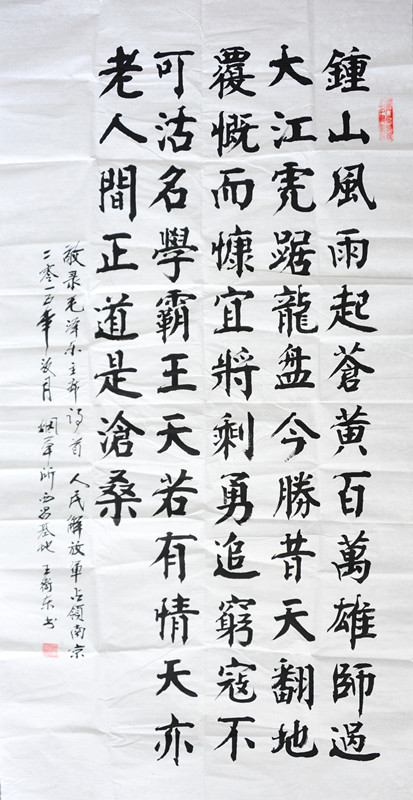 鍾山風雨起蒼黃百萬雄師過
大江虎踞龍盤今勝昔天翻地
覆慨而慷宜將剩勇追窮寇不
可沽名學霸王天若有情天亦
老人間正道是滄桑
敬录毛泽东主席诗首 人民解放軍占領南京
二零 年 月 所 基地 王 东书